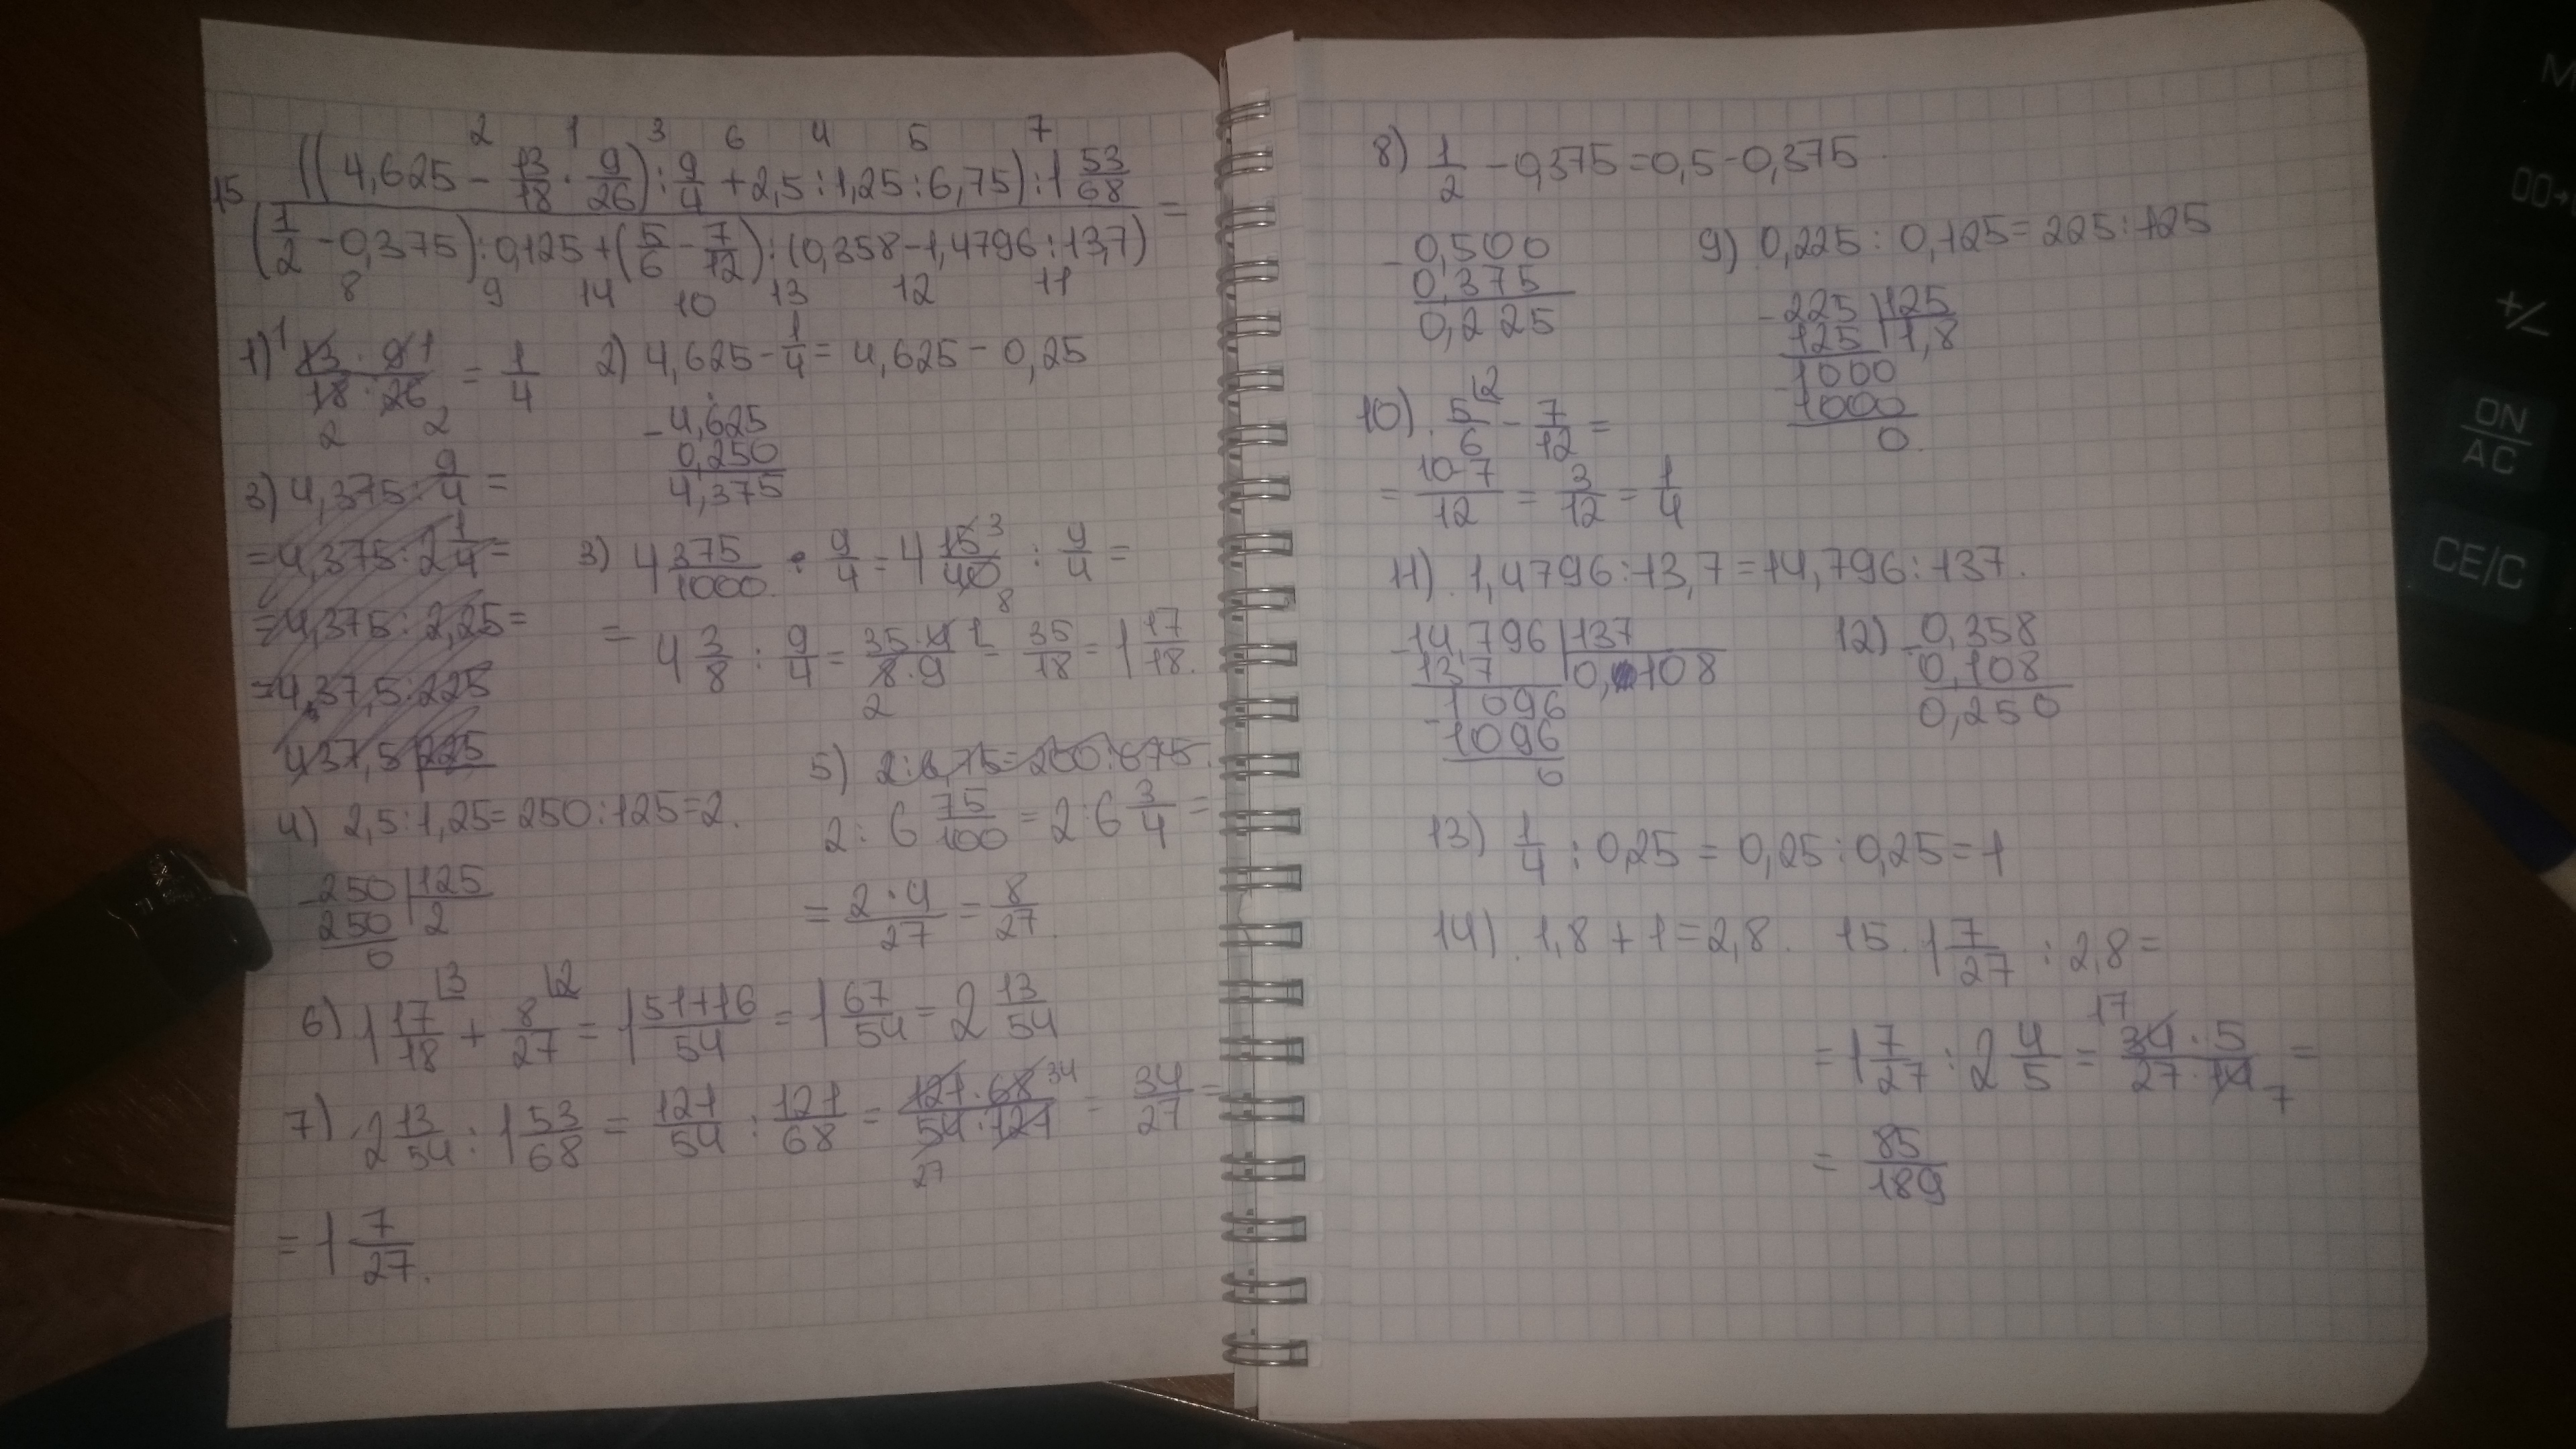 2 1 3 6 4 5 7
((4,625 - 13/18 · 9/26) : 9/4 + 2,5 : 1,25 : 6,75) : 1 53/68
15 =
(1/2 - 0,375) : 0,125 + (5/6 - 7/12) : (0,358 - 1,4796 : 13,7)
8 9 14 10 13 12 11
1) 13 · 9 / 18 · 26 = 1/4
1 1
2 2
2) 4,625 - 1/4 = 4,625 - 0,25
- 4,625
0,250
4,375
3) 4,375 : 9/4 =
= 4,375 : 2 1/4 =
= 4,375 : 2,25 =
= 437,5 : 225
437,5 225
3) 4 375/1000 : 9/4 = 4 15/40 : 9/4 =
3
8
= 4 3/8 : 9/4 = 35 · 4 / 8 · 9 = 35/18 = 1 17/18.
1
2
4) 2,5 : 1,25 = 250 : 125 = 2.
- 250 125
250 2
0
5) 2 : 6,75 = 200 : 675.
2 : 6 75/100 = 2 : 6 3/4 =
= 2 · 4 / 27 = 8/27.
6) 1 17/18 + 8/27 = 1 51+16/54 = 1 67/54 = 2 13/54
3 2
7) 2 13/54 : 1 53/68 = 121/54 : 121/68 = 121 · 68 / 54 · 121 = 34/27 =
34
27
= 1 7/27.
8) 1/2 - 0,375 = 0,5 - 0,375.
- 0,500
0,375
0,225
9) 0,225 : 0,125 = 225 : 125
- 225 125
125 1,8
- 1000
1000
0.
10) 5/6 - 7/12 =
2
= 10-7/12 = 3/12 = 1/4
11). 1,4796 : 13,7 = 14,796 : 137.
- 14,796 137
137 0,108
- 1096
1096
0
12) - 0,358
0,108
0,250
13) 1/4 : 0,25 = 0,25 : 0,25 = 1
14). 1,8 + 1 = 2,8. 15. 1 7/27 : 2,8 =
= 1 7/27 : 2 4/5 = 34 · 5 / 27 · 14 =
17
7
= 85/189
M
00→
+/−
ON
AC
CE/C